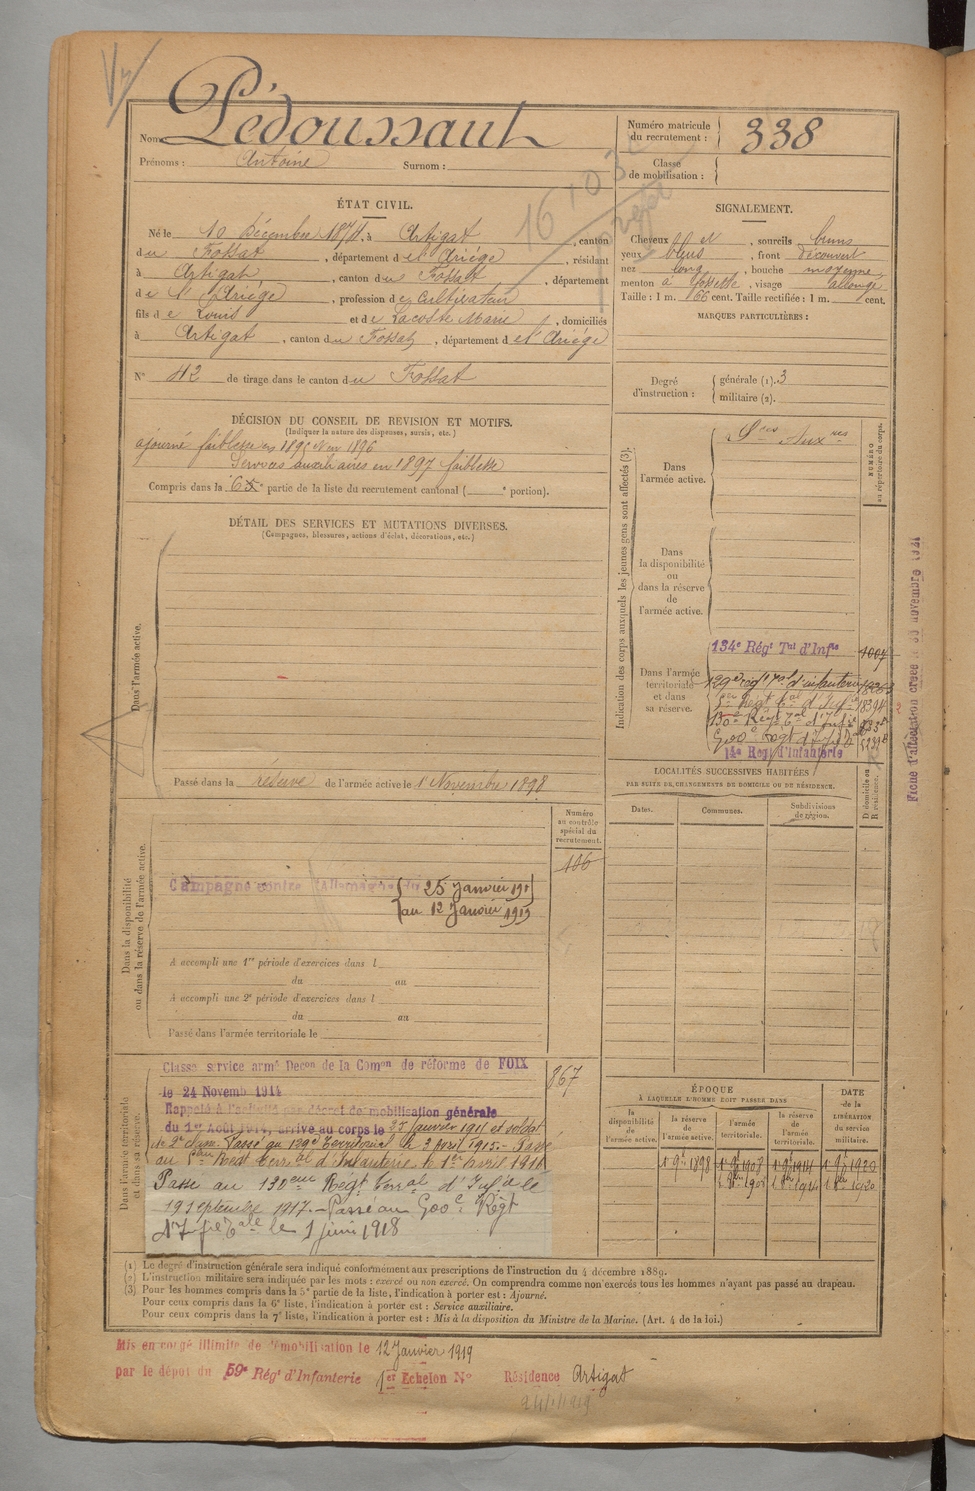 Nom Pédoussaut
Prénoms : Antoine Surnom :
Numéro matricule du recrutement : 338
Classe de mobilisation :
ÉTAT CIVIL.
Né le 10 Décembre 1874, à Artigat, canton
du Fossat, département de l'Ariège, résidant
à Artigat, canton du Fossat, département
de l'Ariège, profession de Cultivateur
fils de Louis et de Lacoste Marie, domiciliés
à Artigat, canton du Fossat, département de l'Ariège
N° 42 de tirage dans le canton du Fossat
SIGNALEMENT.
Cheveux et, sourcils bruns
yeux bleus, front découvert
nez long, bouche moyenne
menton à fossette, visage allongé
Taille : 1 m. 66 cent. Taille rectifiée : 1 m. cent.
MARQUES PARTICULIÈRES :
Degré d'instruction : générale (1). 3
militaire (2).
DÉCISION DU CONSEIL DE REVISION ET MOTIFS.
(Indiquer la nature des dispenses, sursis, etc.)
ajourné faiblesse en 1895 1896
Services auxiliaires en 1897 faiblesse
Compris dans la 6e partie de la liste du recrutement cantonal ( e portion).
DÉTAIL DES SERVICES ET MUTATIONS DIVERSES.
(Campagnes, blessures, actions d'éclat, décorations, etc.)
Dans l'armée active.
Passé dans la réserve de l'armée active le 1er Novembre 1898
Indication des corps auxquels les jeunes gens sont affectés (3).
NUMÉRO au répertoire du corps.
Dans l'armée active. Sces Auxres
Dans la disponibilité ou dans la réserve de l'armée active.
Dans l'armée territoriale et dans sa réserve.
134e Régt Tal d'Infie
129e régt Tal d'infanterie
130e Régt Tal d'Infie
14e Régt d'Infanterie
Fiche d'affectation créée le novembre 1921
LOCALITÉS SUCCESSIVES HABITÉES
PAR SUITE DE CHANGEMENTS DE DOMICILE OU DE RÉSIDENCE.
Dates. Communes. Subdivisions de région. D domicile ou R résidence.
Dans la disponibilité ou dans la réserve de l'armée active.
Numéro au contrôle spécial du recrutement.
106
Campagne contre l'Allemagne du 25 Janvier 191
au 12 Janvier 1919
A accompli une 1re période d'exercices dans l
du au
A accompli une 2e période d'exercices dans l
du au
Passé dans l'armée territoriale le
Dans l'armée territoriale et dans sa réserve.
867
Classé service armé Decon de la Comon de réforme de FOIX
le 24 Novemb 1914
Rappelé à l'activité par décret de mobilisation générale
du 1er Août 1914, arrivé au corps le Janvier 191 et soldat
de 2e classe. Passé au 129e Territorial le 3 avril 1915. Passé
au Régt Terral d'Infanterie le 1er avril 191
Passé au 130ème Régt Terral d'Infie le
19 septembre 1917. Passé au 500e Régt
d'Infie Tale le 1 juin 1918
ÉPOQUE
À LAQUELLE L'HOMME DOIT PASSER DANS
la disponibilité de l'armée active. la réserve de l'armée active. l'armée territoriale. la réserve de l'armée territoriale.
DATE de la LIBÉRATION du service militaire.
1 9bre 1898 1 9bre 1908 1 9bre 1914 1 9bre 1920
(1) Le degré d'instruction générale sera indiqué conformément aux prescriptions de l'instruction du 4 décembre 1889.
(2) L'instruction militaire sera indiquée par les mots : exercé ou non exercé. On comprendra comme non exercés tous les hommes n'ayant pas passé au drapeau.
(3) Pour les hommes compris dans la 5e partie de la liste, l'indication à porter est : Ajourné.
Pour ceux compris dans la 6e liste, l'indication à porter est : Service auxiliaire.
Pour ceux compris dans la 7e liste, l'indication à porter est : Mis à la disposition du Ministre de la Marine. (Art. 4 de la loi.)
Mis en congé illimité de démobilisation le 12 Janvier 1919
par le dépôt du 59e Régt d'Infanterie 1er Echelon N° Résidence Artigat